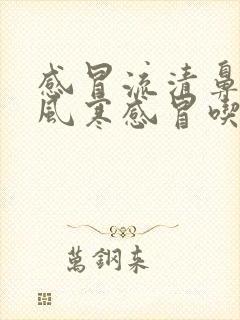 感冒流清鼻
風寒感冒喫
萬鋼來